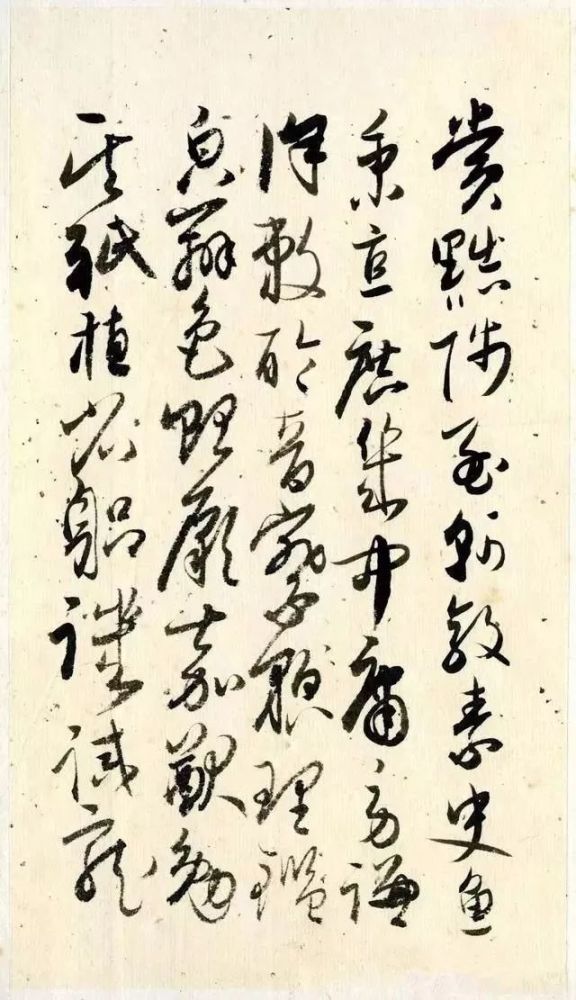 賞黜陟孟軻敦素史魚
秉直庶幾中庸勞謙
謹敕聆音察理鑑
皃辨色貽厥嘉猷勉
其祗植省躳譏誡寵